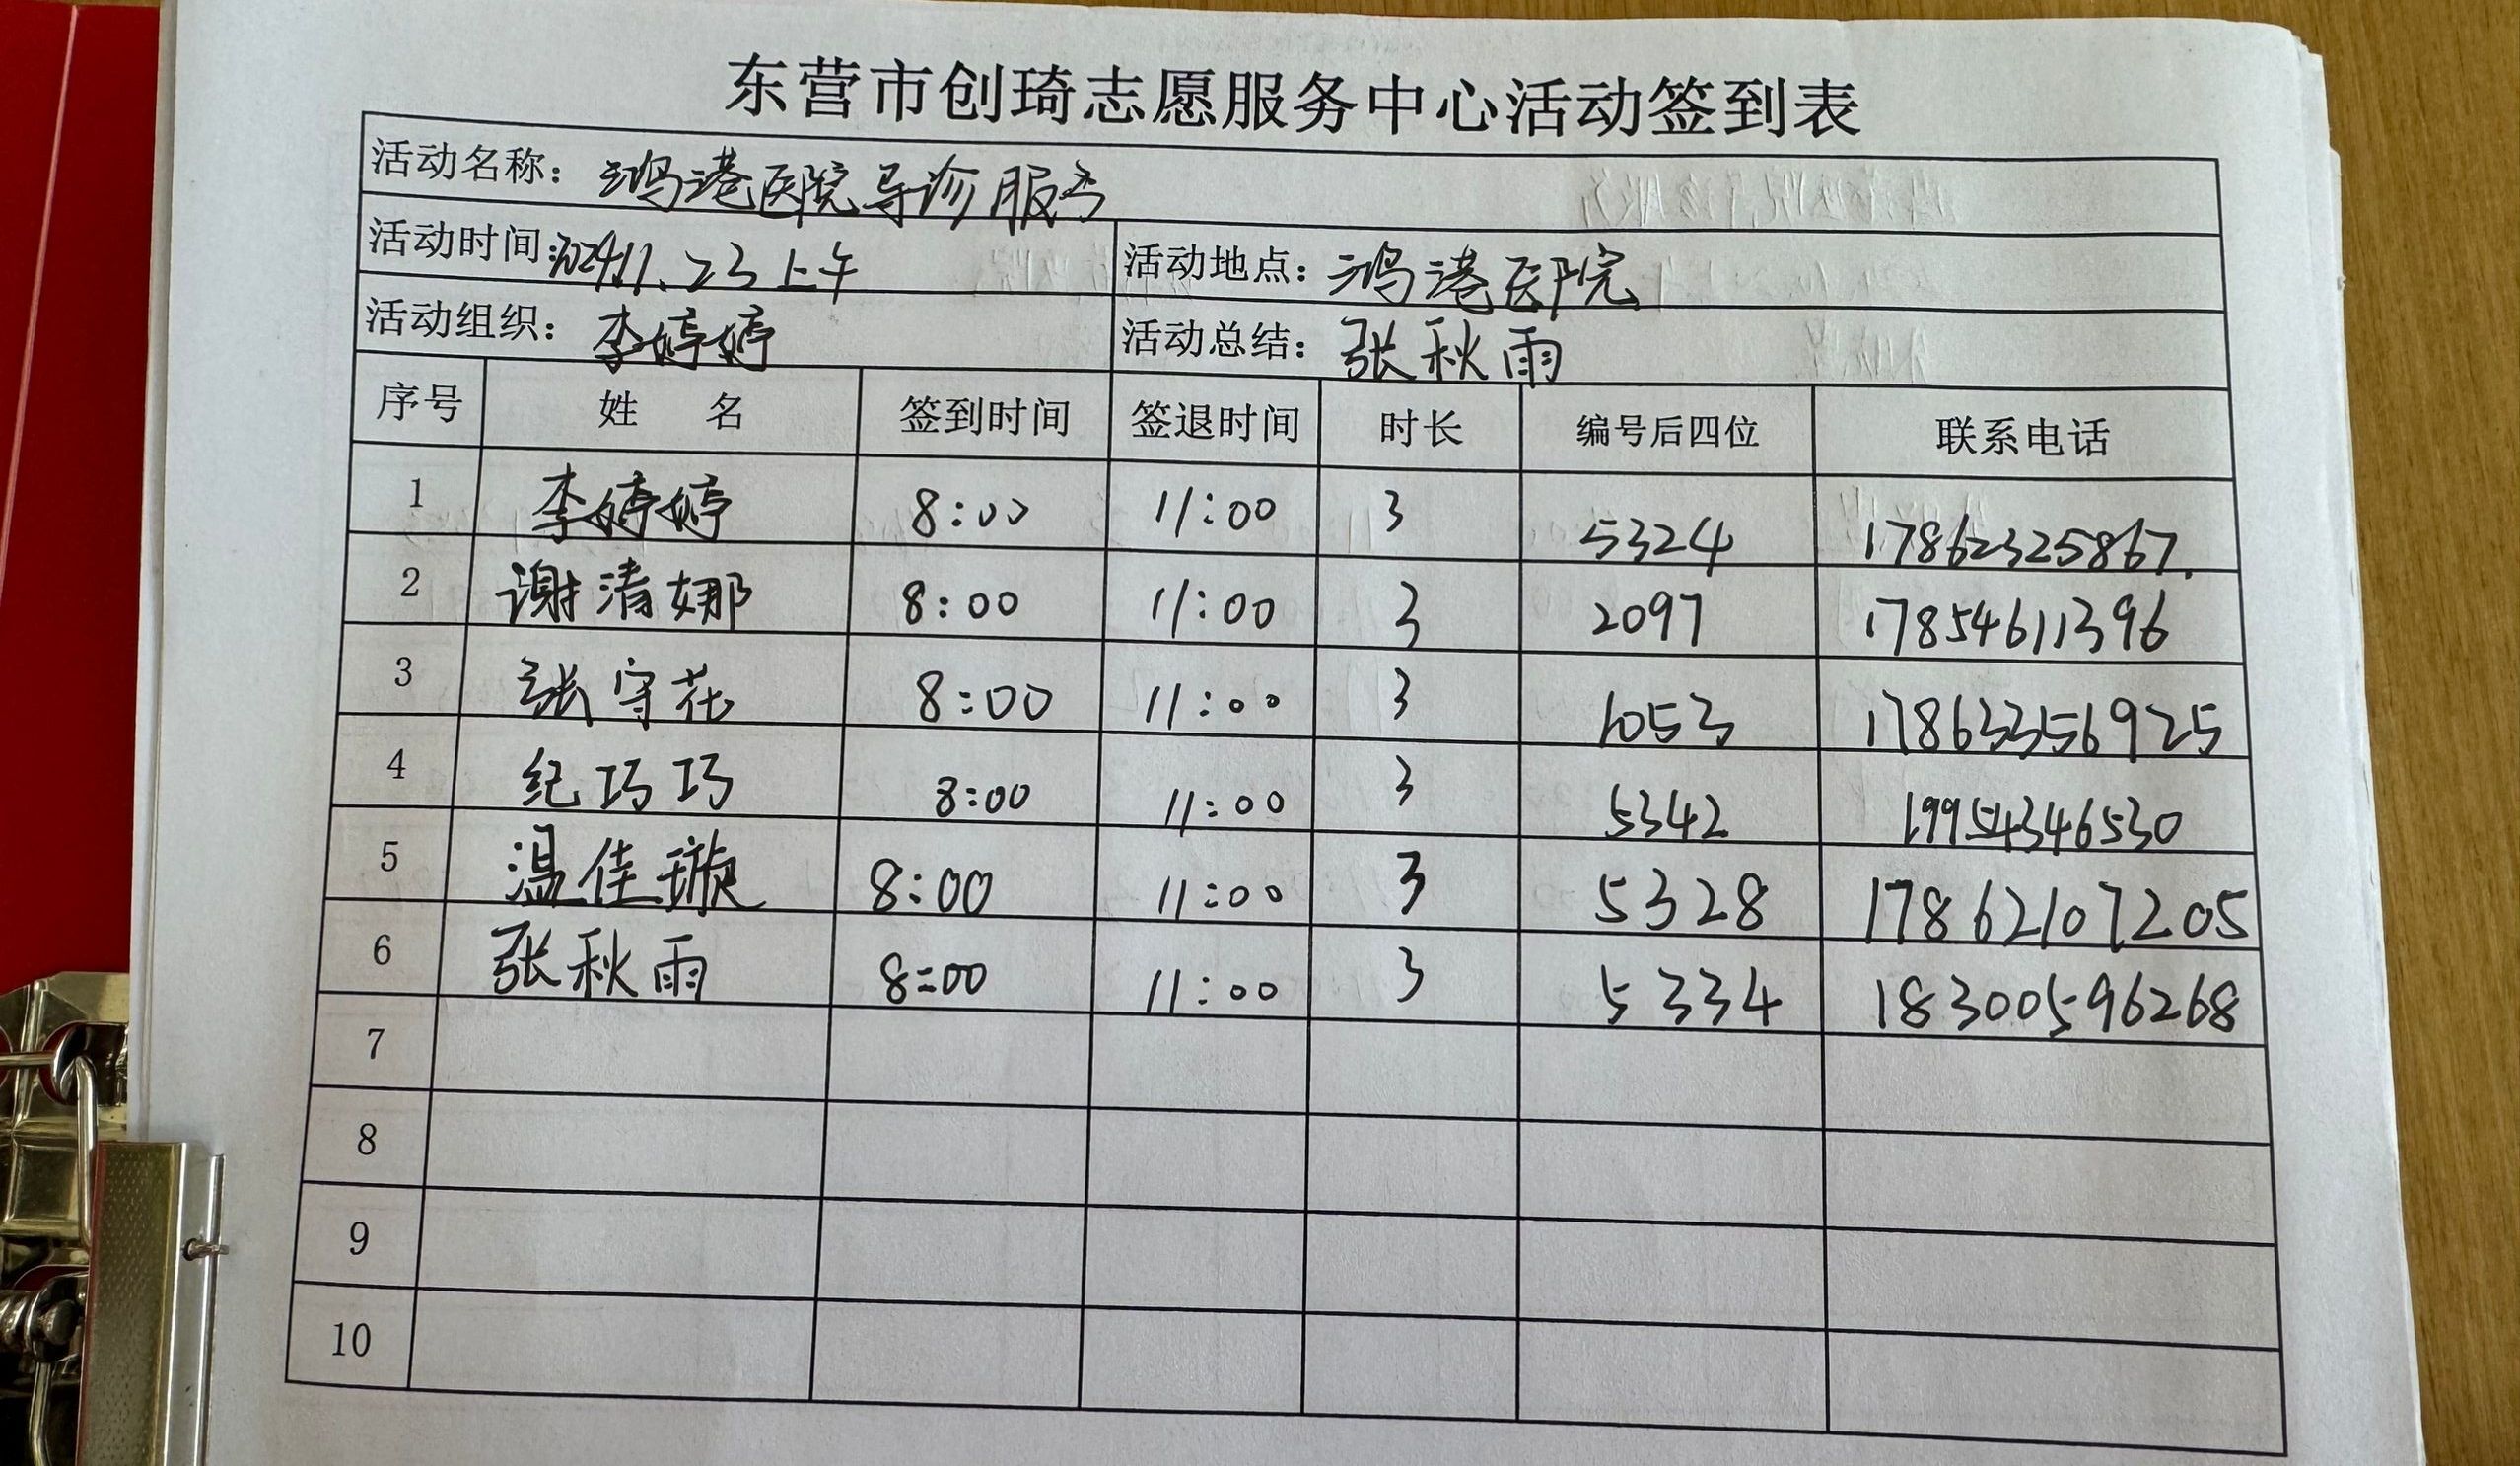 东营市创琦志愿服务中心活动签到表
活动名称：鸿港医院导诊服务
活动时间：2024.11.23上午 活动地点：鸿港医院
活动组织：李婷婷 活动总结：张秋雨
序号 姓 名 签到时间 签退时间 时长 编号后四位 联系电话
1 李婷婷 8:00 11:00 3 5324 17862325867.
2 谢清娜 8:00 11:00 3 2097 17854611396
3 张守花 8:00 11:00 3 1053 17863356925
4 纪巧巧 8:00 11:00 3 5342 19954346530
5 温佳璇 8:00 11:00 3 5328 17862107205
6 张秋雨 8:00 11:00 3 5334 18300596268
7
8
9
10